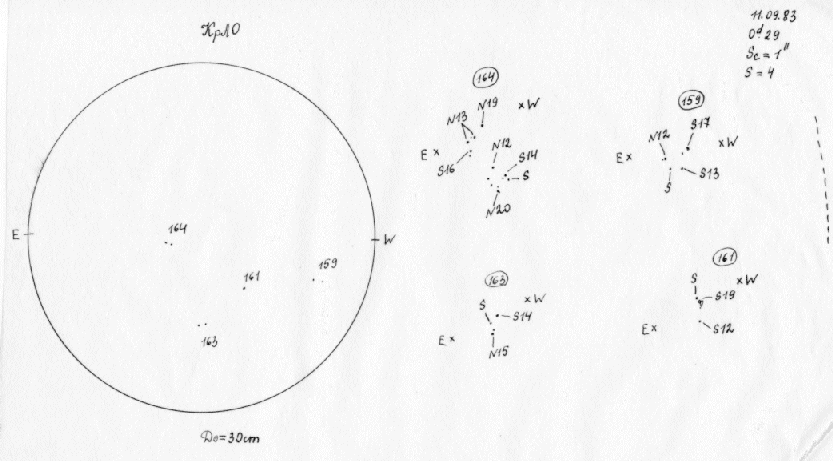 КрАО
11.09.83
0d.29
Sc = 1"
S = 4
E
W
164
161
159
163
D⊙=30cm
164
N13
N19
× W
E ×
S16
N12
S14
S
N20
159
N12
S17
× W
E ×
S
S13
163
S
× W
S14
E ×
N15
161
S
× W
S19
E ×
S12